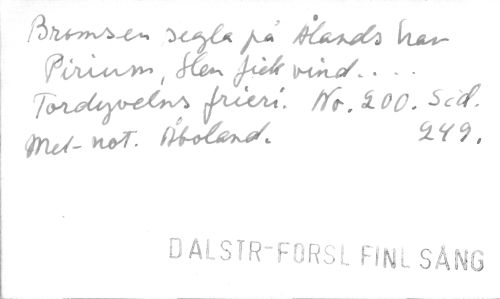 Bromsen segla på Ålands hav
Pirium, Hen fick vind....
Tordyvelns frieri. No. 200. Sid.
Mel-not. Åboland. 249.
DALSTR-FORSL FINL SÅNG